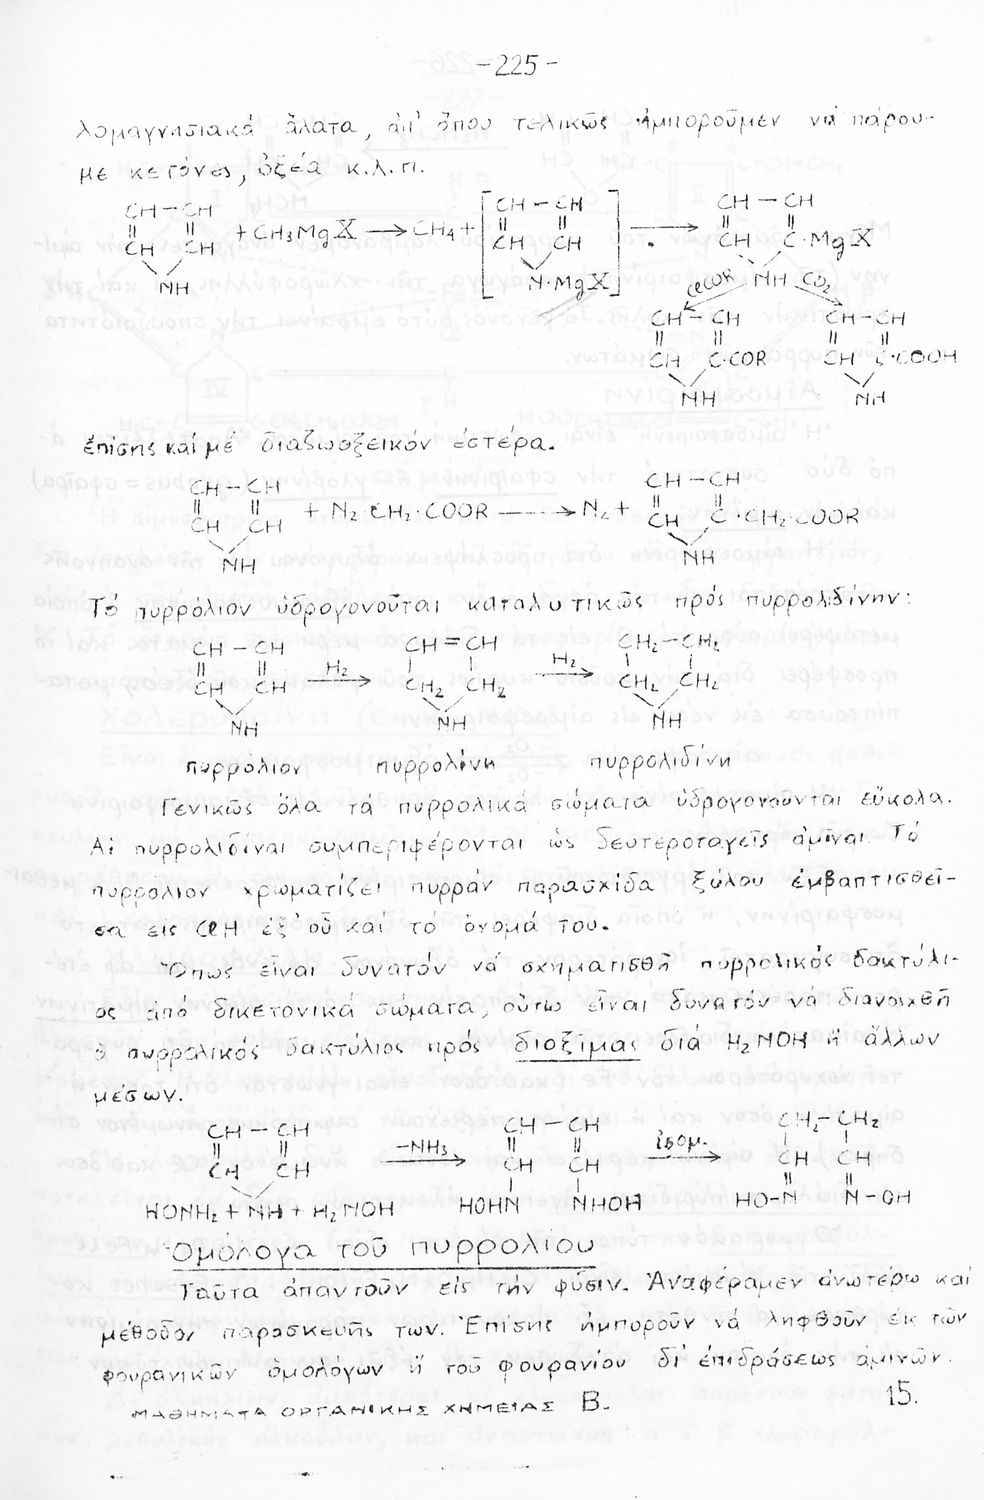 -225-
λομαγνησιακά ἅλατα, ἀπ' ὅπου τελικῶς ἠμποροῦμεν νά πάρου-
με κετόνες, ὀξέα κ.λ.π.
CH - CH CH - CH CH - CH
CH CH + CH₃MgX → CH₄ + CH CH → CH C·MgX
NH N·MgX NH
ClCOR CO₂
CH - CH CH - CH
CH C·COR CH C·COOH
NH NH
ἐπίσης καί μέ διαζωοξεικόν ἐστέρα.
CH - CH CH - CH
CH CH + N₂·CH₂·COOR → N₂ + CH C·CH₂·COOR
NH NH
Τό πυρρόλιον ὑδρογονοῦται καταλυτικῶς πρός πυρρολιδίνην:
CH - CH CH = CH CH₂ - CH₂
CH CH H₂ → CH₂ CH₂ H₂ → CH₂ CH₂
NH NH NH
πυρρόλιον πυρρολίνη πυρρολιδίνη
Γενικῶς ὅλα τά πυρρολικά σώματα ὑδρογονοῦνται εὔκολα.
Αἱ πυρρολιδίναι συμπεριφέρονται ὡς δευτεροταγεῖς ἀμῖναι. Τό
πυρρόλιον χρωματίζει πυρράν παρασχίδα ξύλου ἐμβαπτισθεῖ-
σα εἰς ClH ἐξ οὗ καί τό ὄνομά του.
Ὅπως εἶναι δυνατόν νά σχηματισθῆ πυρρολικός δακτύλι-
ος ἀπό δικετονικά σώματα, οὕτω εἶναι δυνατόν νά διανοιχθῆ
ὁ πυρρολικός δακτύλιος πρός διοξίμας διά H₂NOH ἤ ἄλλων
μέσων.
CH - CH CH - CH CH₂ - CH₂
CH CH -NH₃ → CH CH ἰσομ. → CH CH
HONH₂ + NH + H₂NOH HOHN NHOH HO-N N-OH
Ὁμόλογα τοῦ πυρρολίου
Ταῦτα ἀπαντοῦν εἰς τήν φύσιν. Ἀναφέραμεν ἀνωτέρω καί
μέθοδον παρασκευῆς των. Ἐπίσης ἠμποροῦν νά ληφθοῦν ἐκ τῶν
φουρανικῶν ὁμολόγων ἤ τοῦ φουρανίου δι' ἐπιδράσεως ἀμινῶν.
ΜΑΘΗΜΑΤΑ ΟΡΓΑΝΙΚΗΣ ΧΗΜΕΙΑΣ Β. 15.